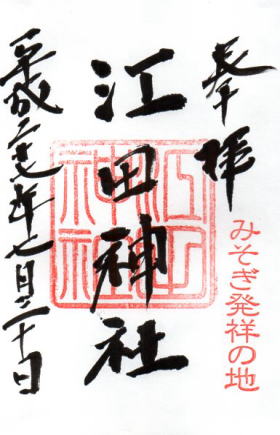 奉拝
みそぎ発祥の地
江田神社
江田神社
平成二十七年七月二十日